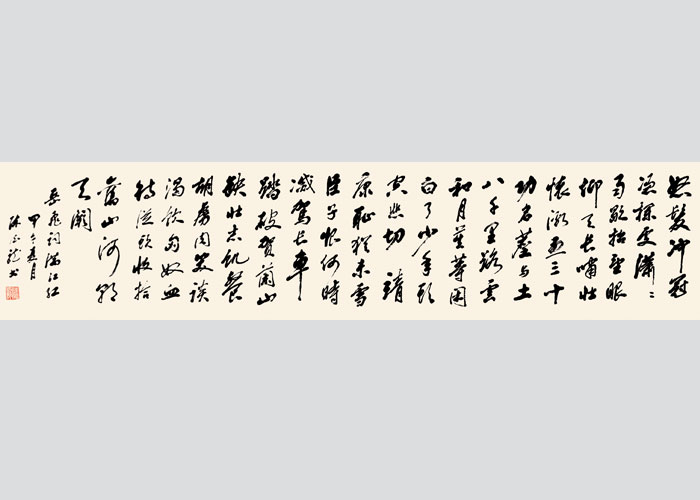 怒髮冲冠
憑欄處瀟〻
雨歇抬望眼
仰天長嘯壯
懷激烈三十
功名塵与土
八千里路雲
和月莫等閑
白了少年頭
空悲切 靖
康耻猶未雪
臣子恨何時
滅駕長車
踏破賀蘭山
缺壯志飢餐
胡虜肉笑談
渴飲匈奴血
待從頭收拾
舊山河朝
天闕
岳飛詞滿江紅
甲午夏月
書